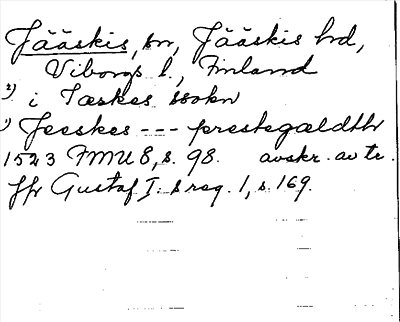 Jääskis, sn, Jääskis hd,
Viborgs l., Finland
2) i Jæskes sokn
1) Jeeskes --- prestegældthr
1523 FMU 8, s. 98. avskr. av tr.
jfr Gustaf I:s reg. 1, s. 169.